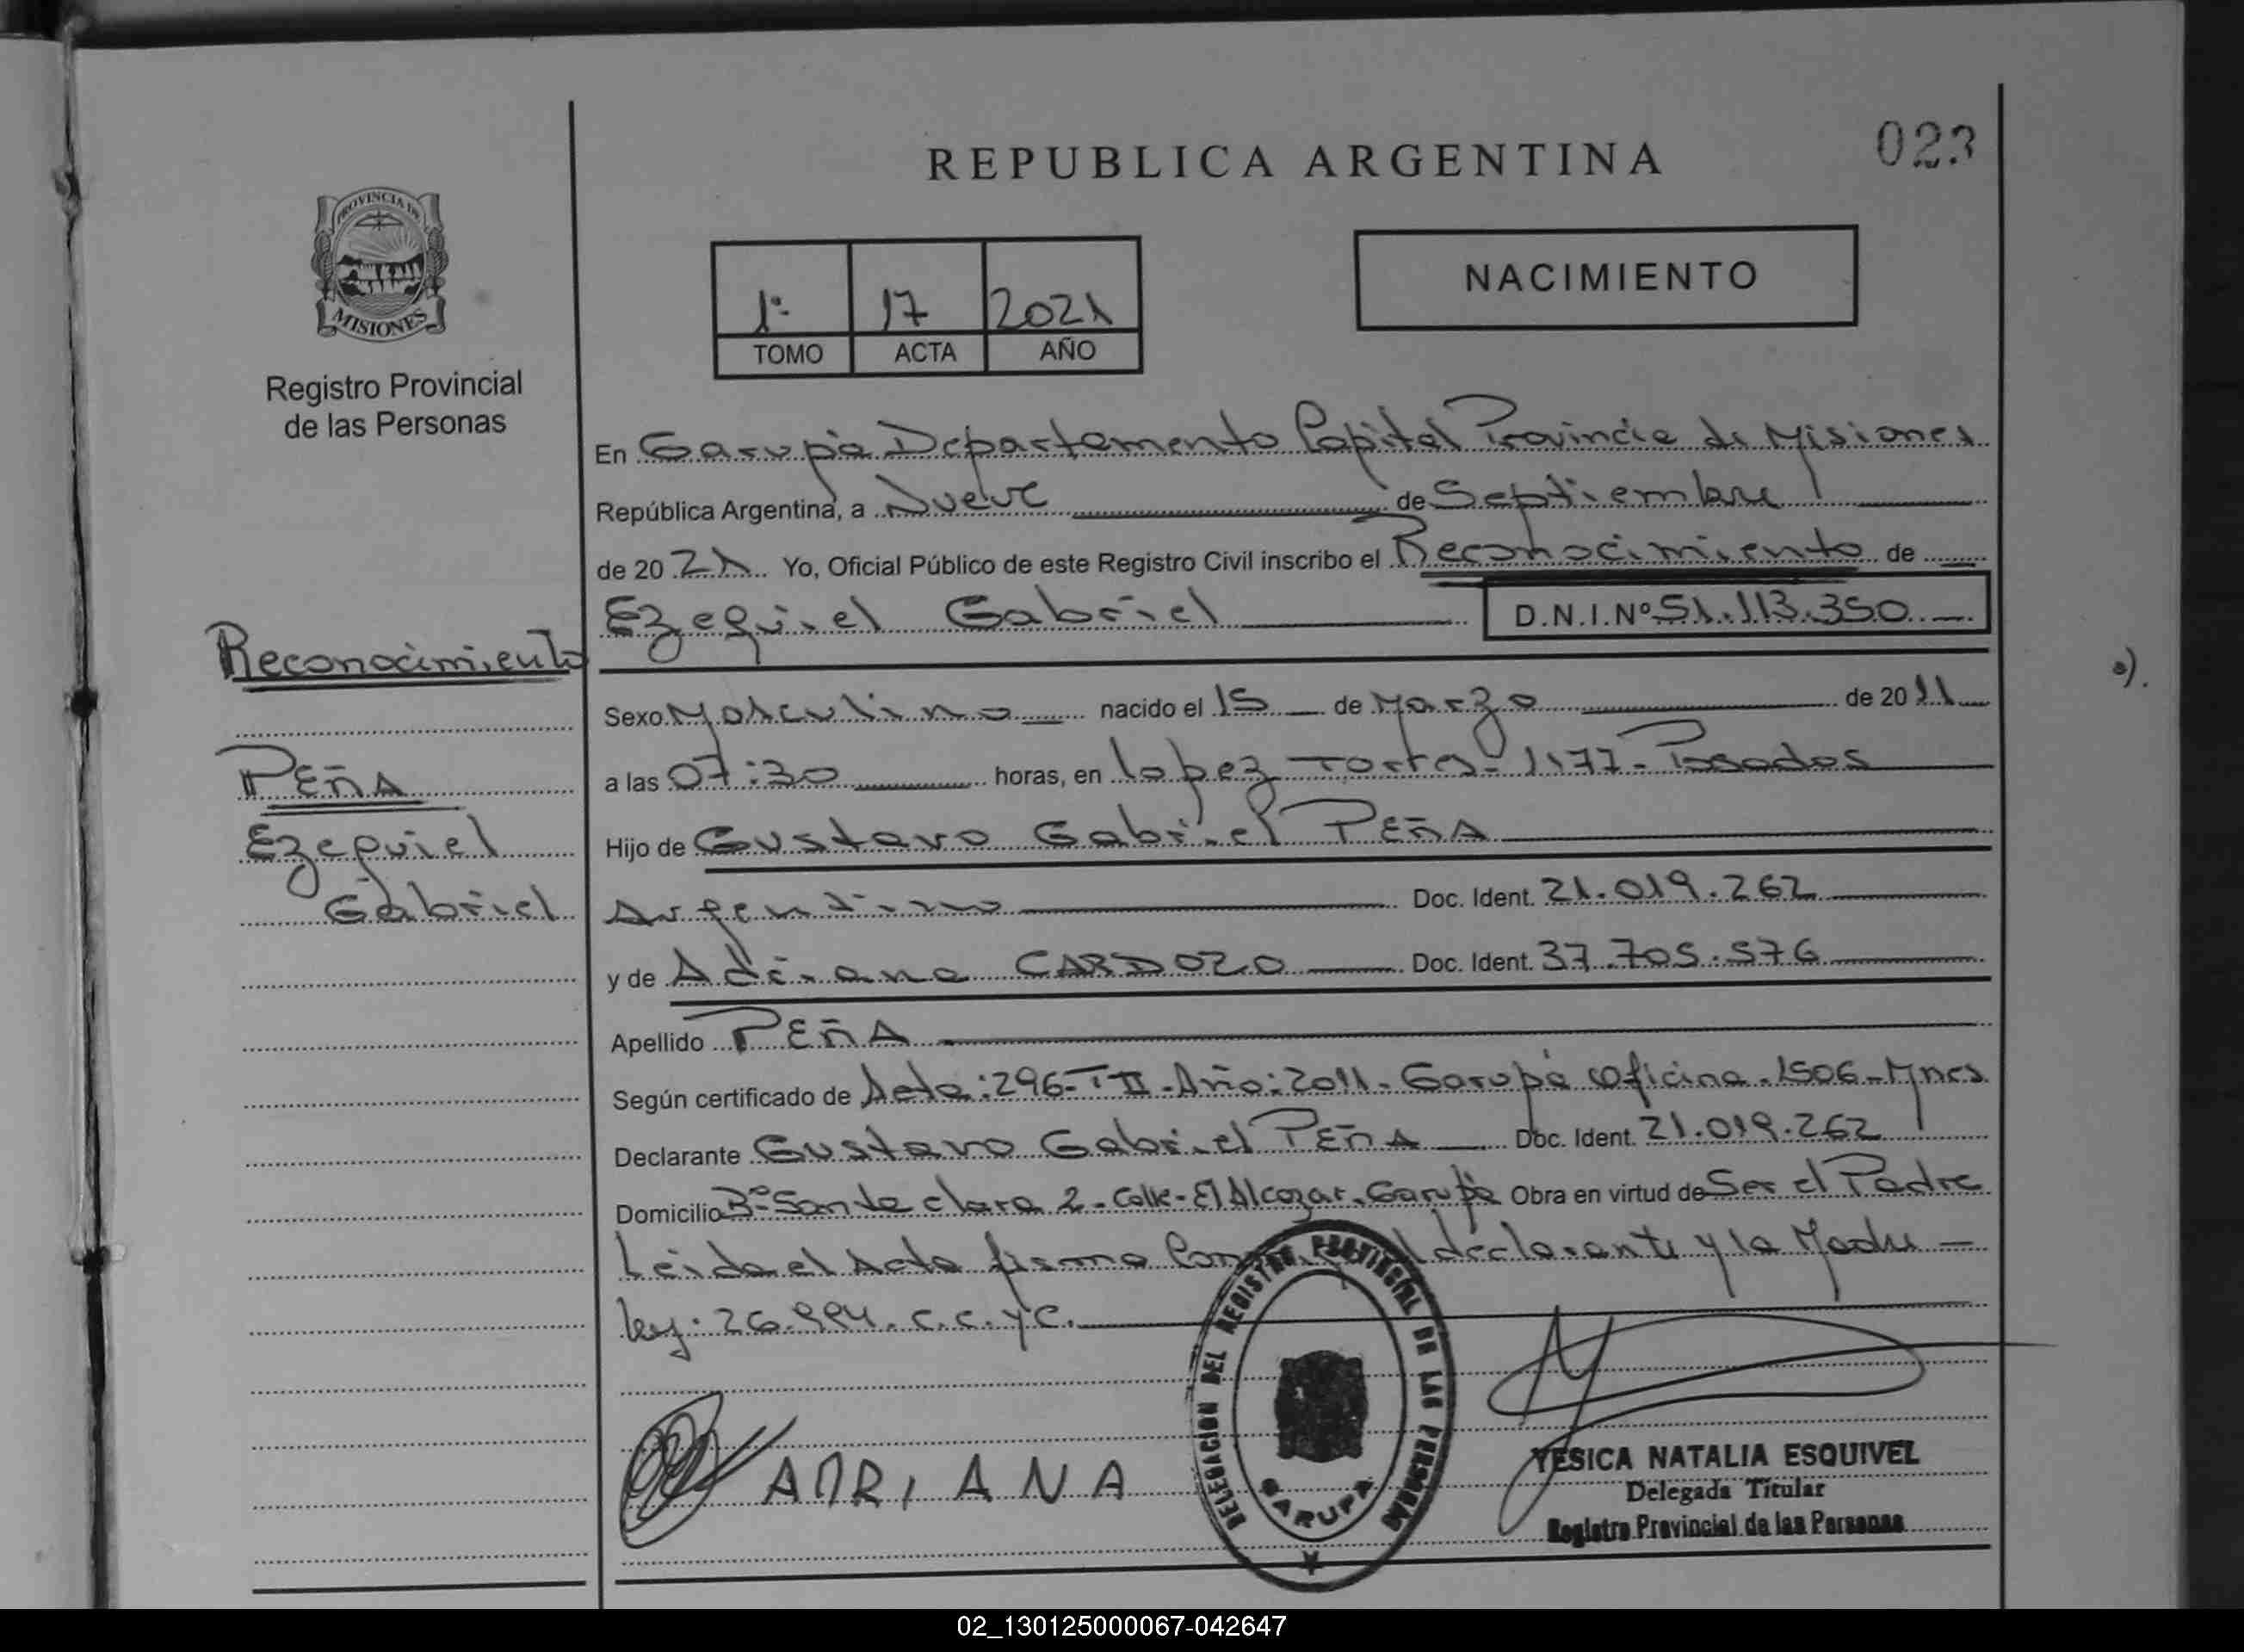 023
REPUBLICA ARGENTINA
NACIMIENTO
PROVINCIA DE
MISIONES
Registro Provincial
de las Personas
1º 17 2021
TOMO ACTA AÑO
En Garupá Departamento Capital Provincia de Misiones
República Argentina, a Nueve de Septiembre
de 2021 Yo, Oficial Público de este Registro Civil inscribo el Reconocimiento de
Ezequiel Gabriel D.N.I.Nº 51.113.350
Reconocimiento
PEÑA
Ezequiel
Gabriel
Sexo Masculino nacido el 15 de Marzo de 2011
a las 07:30 horas, en Lopez Torres- 1177- Posadas
Hijo de Gustavo Gabriel PEÑA
Argentino Doc. Ident. 21.019.262
y de Adriana CARDOZO Doc. Ident. 37.705.576
Apellido PEÑA
Según certificado de Acta: 296-TII-Año: 2011- Garupá Oficina. 1506-Mnes
Declarante Gustavo Gabriel PEÑA Doc. Ident. 21.019.262
Domicilio Bº Santa Clara 2- Calle- El Alcazar. Garupá Obra en virtud de Ser el Padre
Leida el Acta firma declarante y la Madre
Ley. 26.994. C.C.yC.
ADRIANA
DELEGACION DEL REGISTRO PROVINCIAL DE LAS PERSONAS
GARUPA
YESICA NATALIA ESQUIVEL
Delegada Titular
Registro Provincial de las Personas
02_130125000067-042647